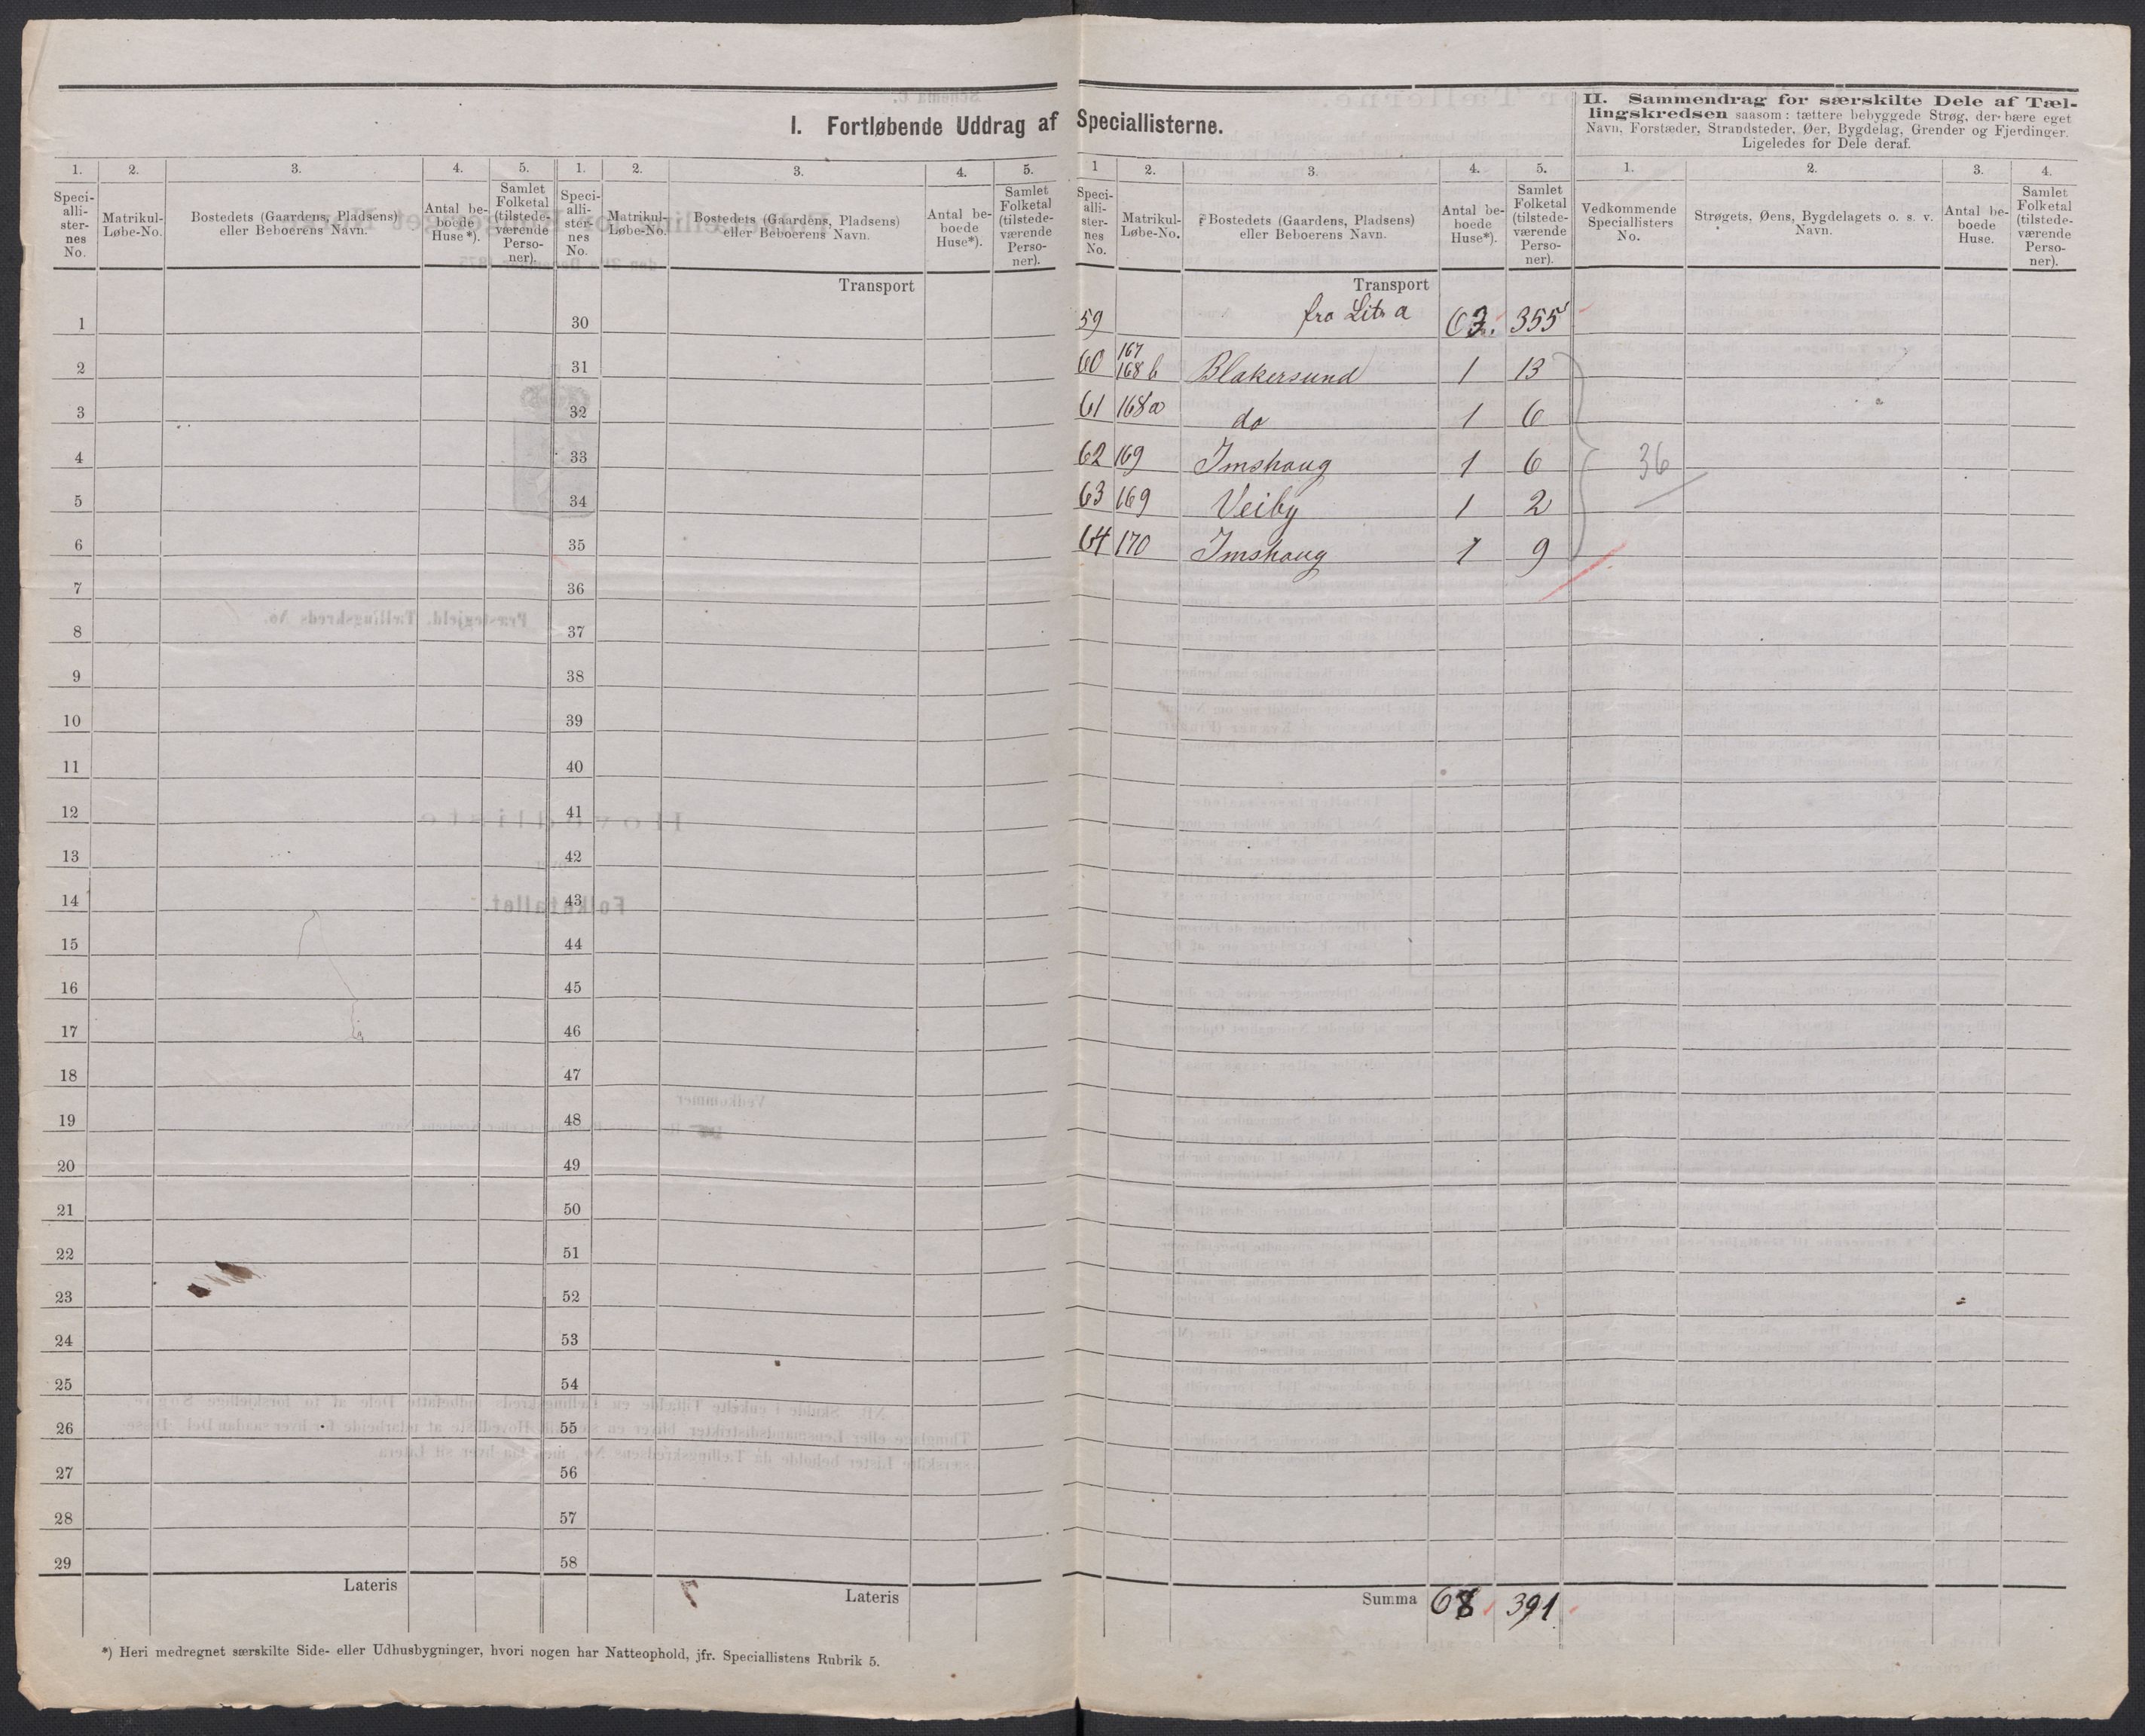 I. Fortløbende Uddrag af Speciallisterne.
1. 2. 3. 4. 5. 1. 2. 3. 4. 5.
Speciallisternes No. Matrikul-Løbe-No. Bostedets (Gaardens, Pladsens) eller Beboerens Navn. Antal beboede Huse*). Samlet Folketal (tilstedeværende Personer).
Speciallisternes No. Matrikul-Løbe-No. Bostedets (Gaardens, Pladsens) eller Beboerens Navn. Antal beboede Huse*). Samlet Folketal (tilstedeværende Personer).
Transport
1 30
2 31
3 32
4 33
5 34
6 35
7 36
8 37
9 38
10 39
11 40
12 41
13 42
14 43
15 44
16 45
17 46
18 47
19 48
20 49
21 50
22 51
23 52
24 53
25 54
26 55
27 56
28 57
29 58
Lateris Lateris
*) Heri medregnet særskilte Side- eller Udhusbygninger, hvori nogen har Natteophold, jfr. Speciallistens Rubrik 5.
1 2. 3. 4. 5.
Speciallisternes No. Matrikul-Løbe-No. Bostedets (Gaardens, Pladsens) eller Beboerens Navn. Antal beboede Huse*). Samlet Folketal (tilstedeværende Personer).
Transport
59 fra Litr a 63. 355
60 167 168 b Blakersund 1 13
61 168a do 1 6
62 169 Imshaug 1 6
63 169 Veiby 1 2
64 170 Imshaug 1 9
36
Summa 68 391
II. Sammendrag for særskilte Dele af Tællingskredsen saasom: tættere bebyggede Strøg, der bære eget
Navn, Forstæder, Strandsteder, Øer, Bygdelag, Grender og Fjerdinger.
Ligeledes for Dele deraf.
1. 2. 3. 4.
Vedkommende Speciallisters No. Strøgets, Øens, Bygdelagets o. s. v. Navn. Antal beboede Huse. Samlet Folketal (tilstedeværende Personer).